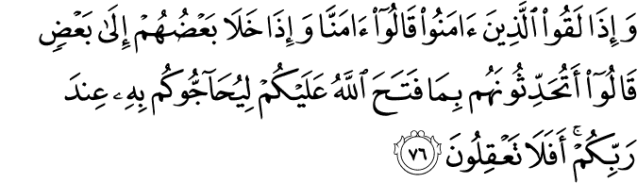 وَإِذَا لَقُوا۟ ٱلَّذِينَ ءَامَنُوا۟ قَالُوٓا۟ ءَامَنَّا وَإِذَا خَلَا بَعْضُهُمْ إِلَىٰ بَعْضٍ
قَالُوٓا۟ أَتُحَدِّثُونَهُم بِمَا فَتَحَ ٱللَّهُ عَلَيْكُمْ لِيُحَآجُّوكُم بِهِۦ عِندَ
رَبِّكُمْ ۚ أَفَلَا تَعْقِلُونَ ٧٦